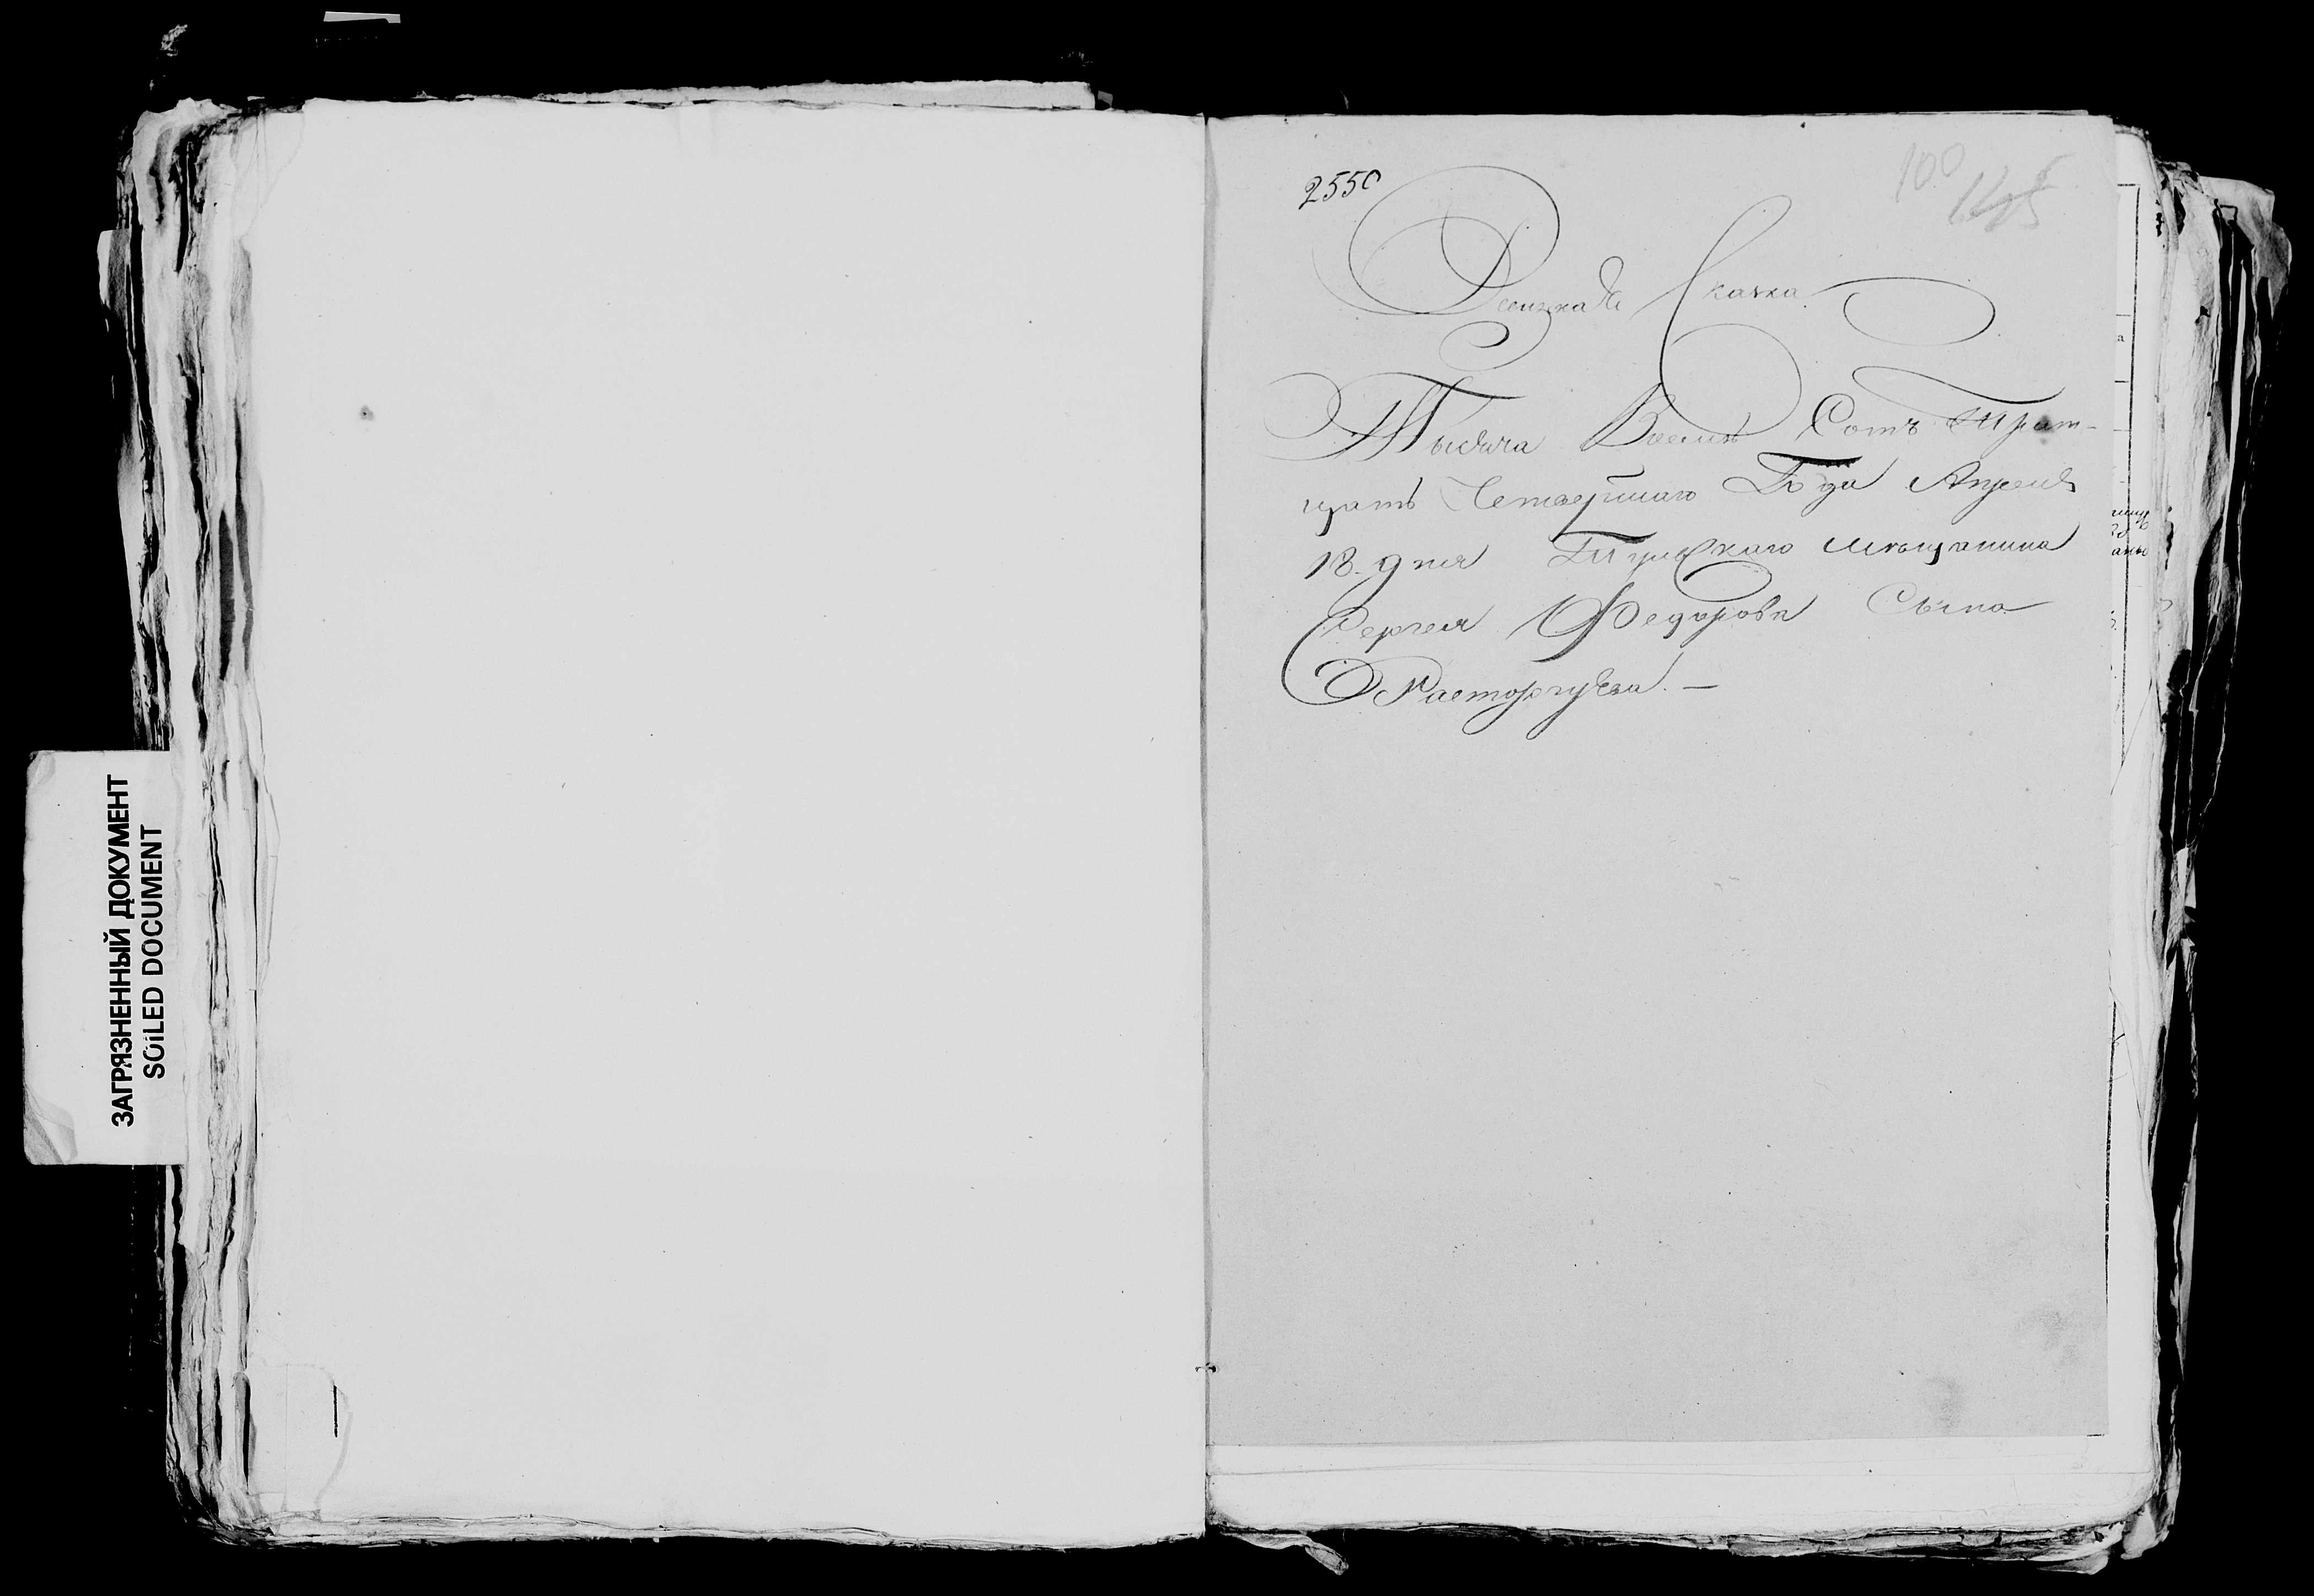 ЗАГРЯЗНЕННЫЙ ДОКУМЕНТ
SOILED DOCUMENT
2550
100
145
Ревизкая Сказка
Тысяча Восемь Сотъ Трит-
цать Четвертаго Года Апреля
18 дня Тульскаго мещанина
Сергея Федорова Сына
Расторгуева. —